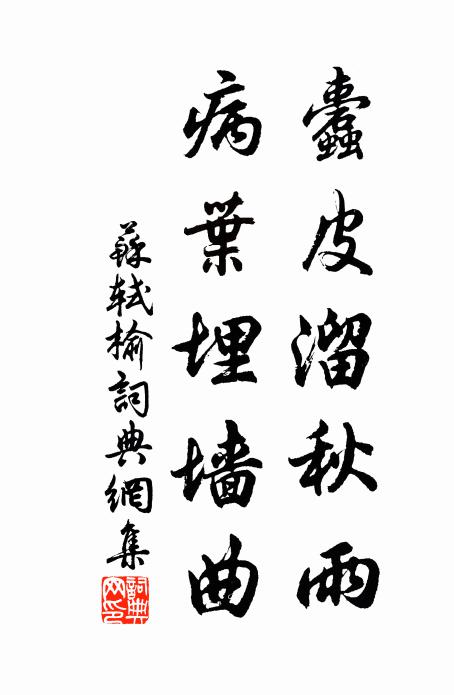 蠹皮溜秋雨
病葉埋墙曲
蘇軾榆詞典網集
詞典网印